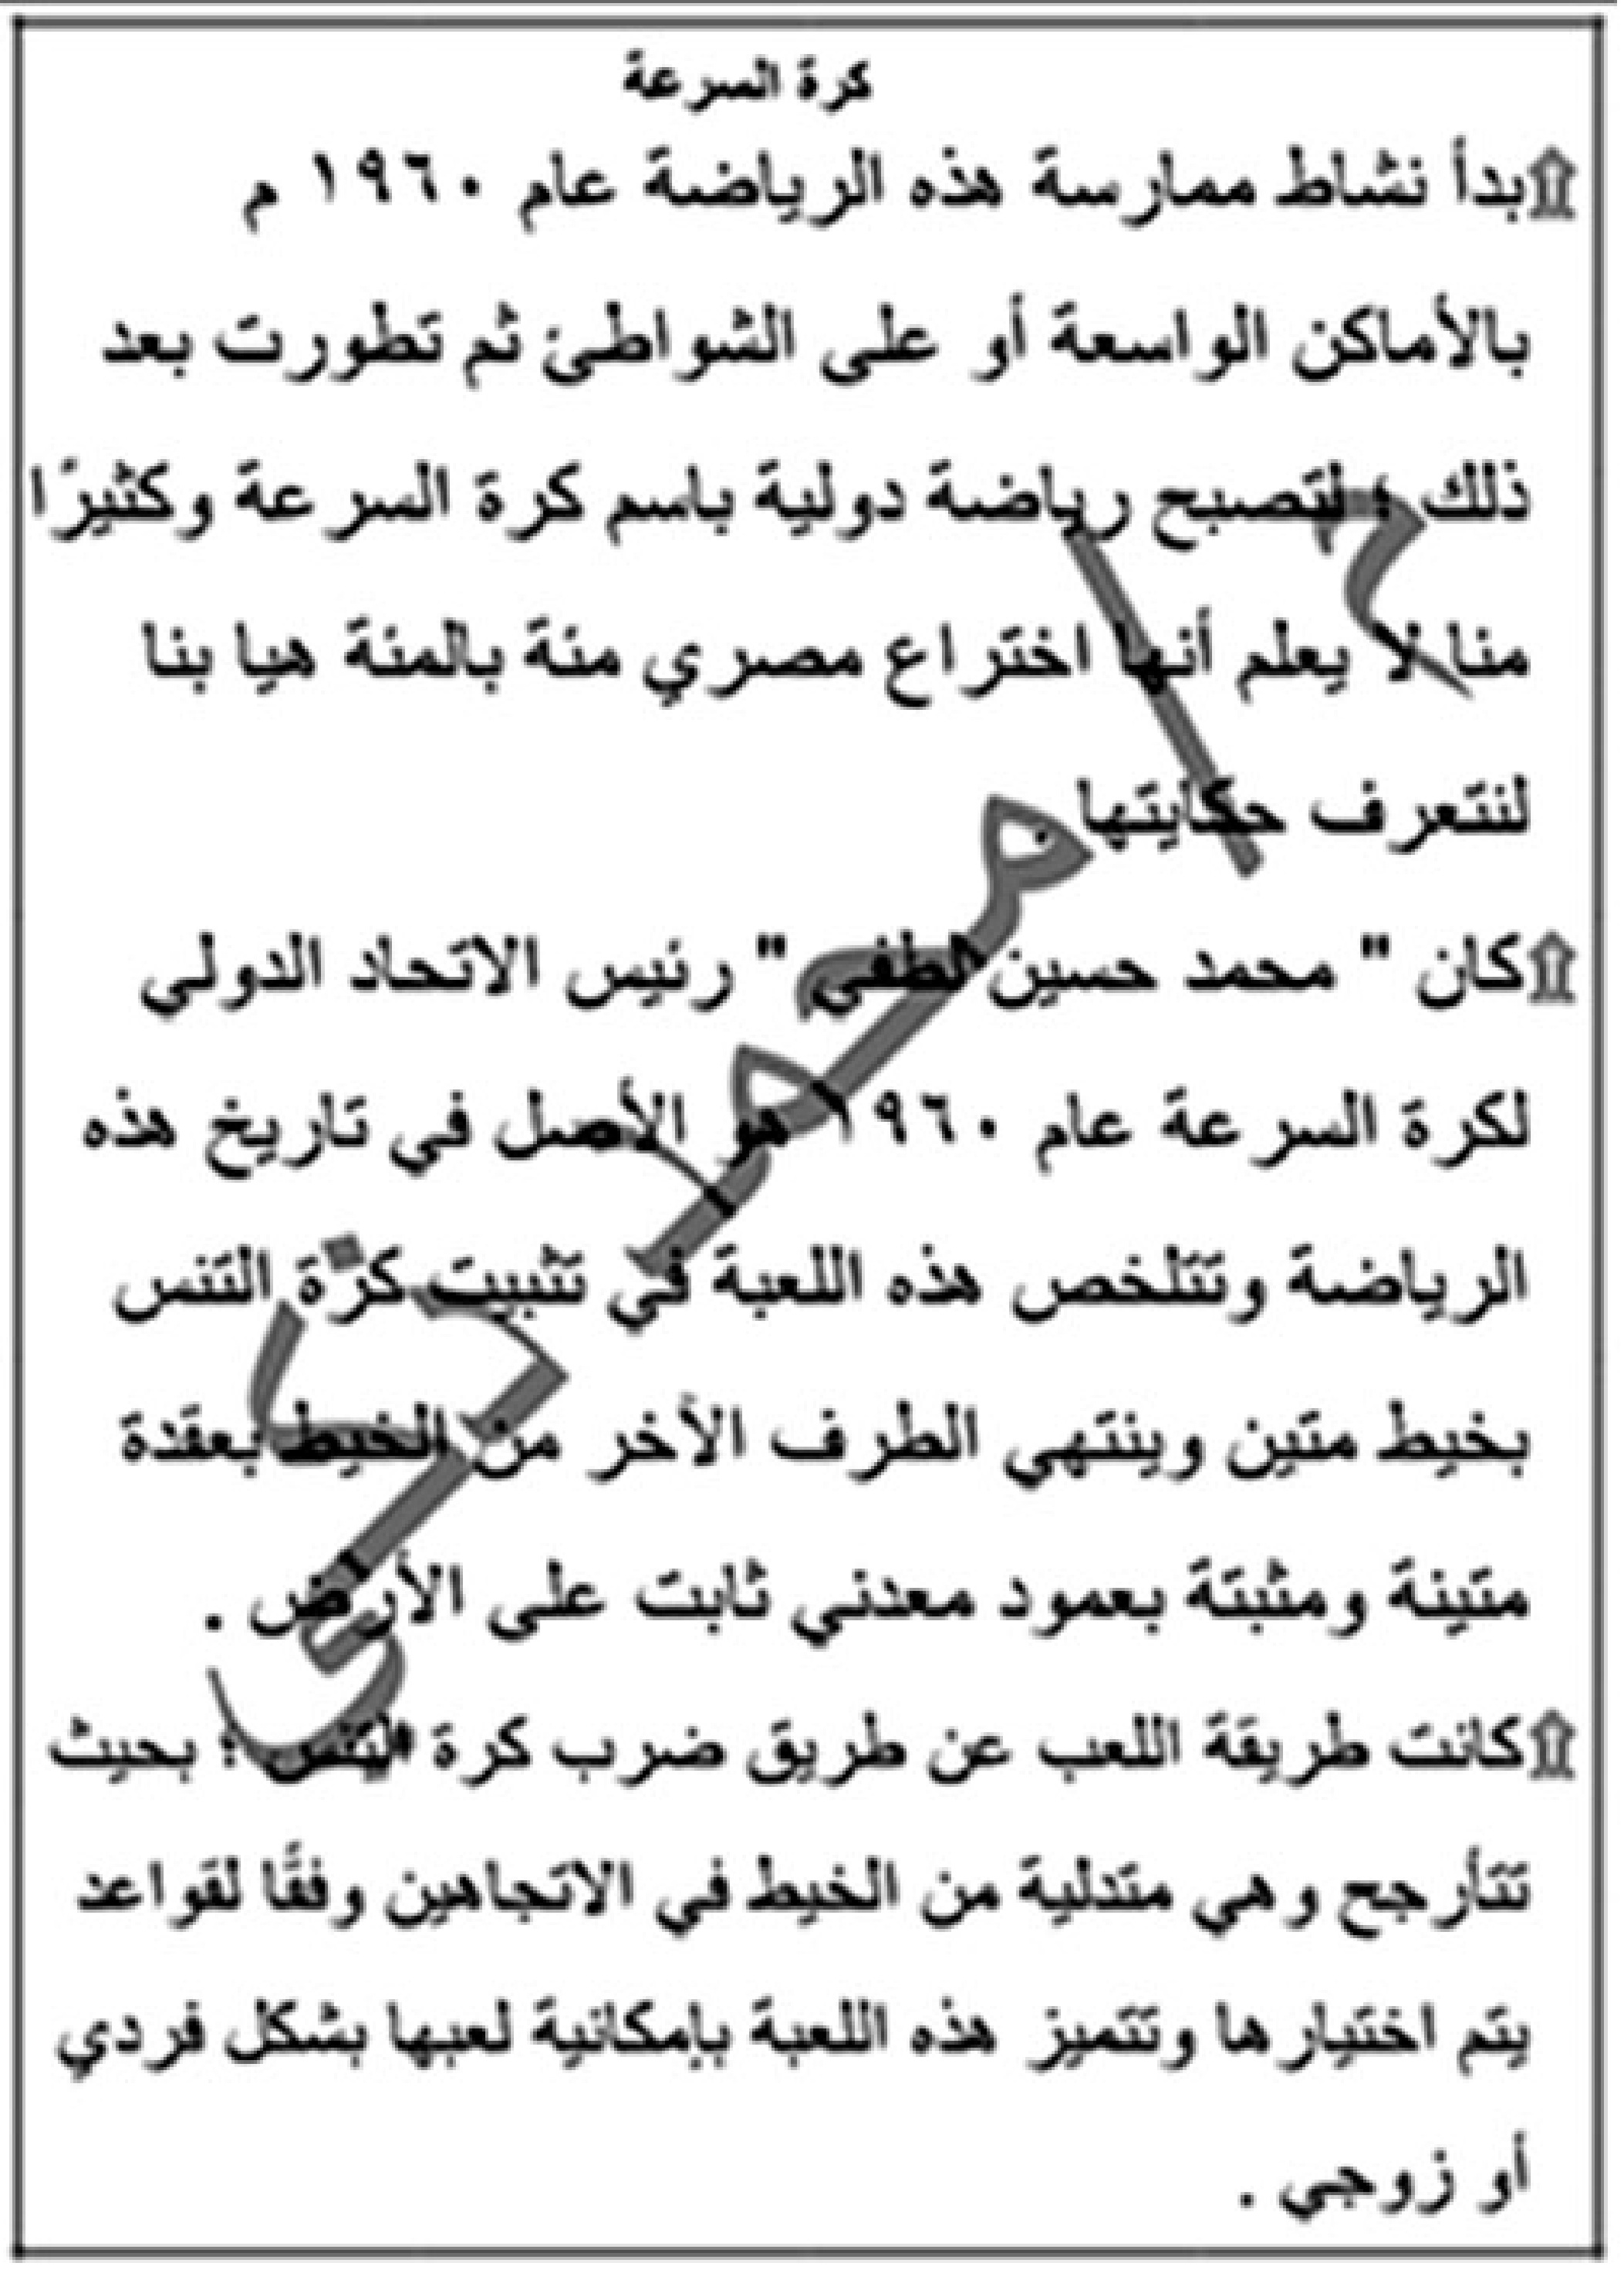 كرة السرعة
۩بدأ نشاط ممارسة هذه الرياضة عام ١٩٦٠ م
بالأماكن الواسعة أو على الشواطئ ثم تطورت بعد
ذلك ؛ لتصبح رياضة دولية باسم كرة السرعة وكثيرًا
منا لا يعلم أنها اختراع مصري مئة بالمئة هيا بنا
لنتعرف حكايتها .
۩كان " محمد حسين لطفي " رئيس الاتحاد الدولي
لكرة السرعة عام ١٩٦٠ هو الأصل في تاريخ هذه
الرياضة وتتلخص هذه اللعبة في تثبيت كرة التنس
بخيط متين وينتهي الطرف الآخر من الخيط بعقدة
متينة ومثبتة بعمود معدني ثابت على الأرض .
۩كانت طريقة اللعب عن طريق ضرب كرة التنس ؛ بحيث
تتأرجح وهي متدلية من الخيط في الاتجاهين وفقًا لقواعد
يتم اختيارها وتتميز هذه اللعبة بإمكانية لعبها بشكل فردي
أو زوجي .